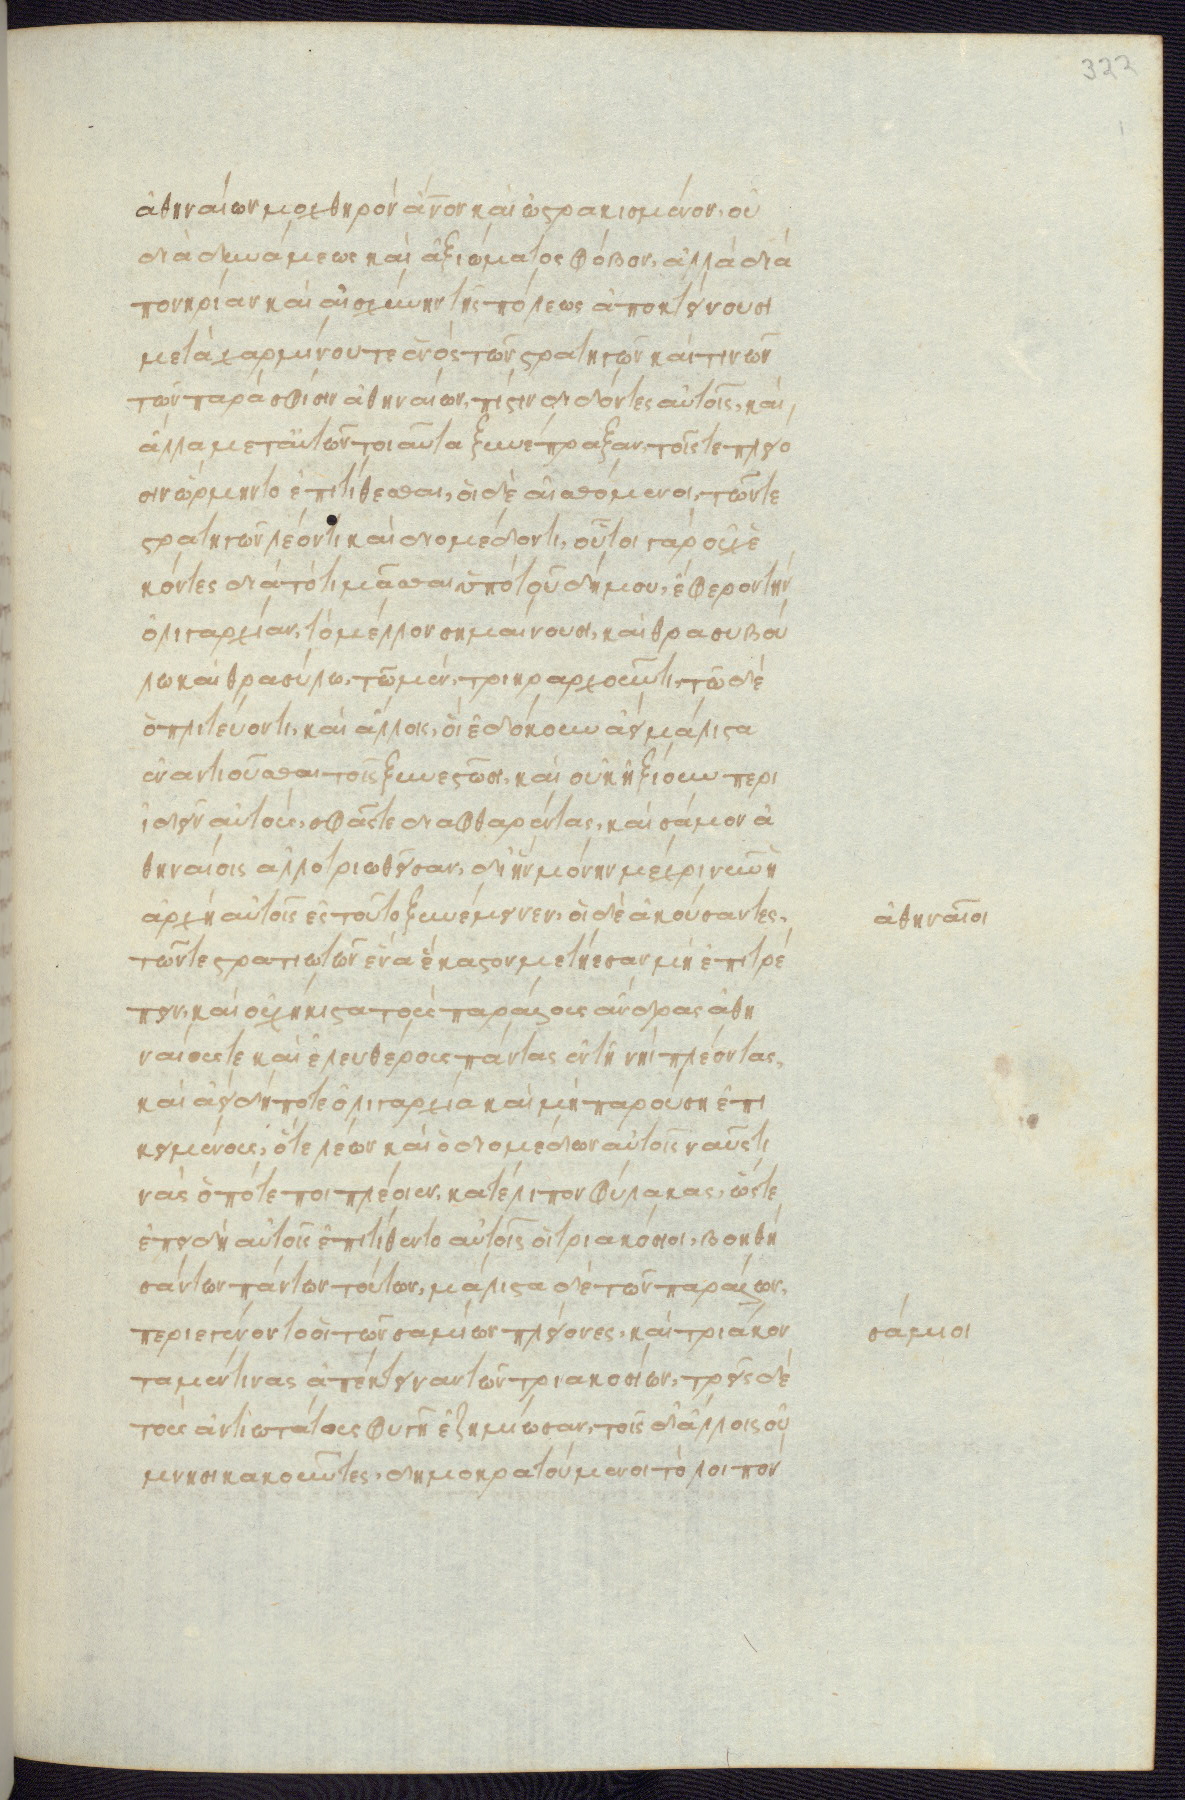 322
ἀθηναίων μοχθηρὸν ἄνον καὶ ὠστρακισμένον, οὐ
διὰ δυνάμεως καὶ ἀξιώματος φόβον, ἀλλὰ διὰ
πονηρίαν καὶ αἰσχύνην τῆς πόλεως ἀποκτείνουσι
μετὰ χαρμίνου τε ἑνὸς τῶν στρατηγῶν καί τινων
τῶν παρὰ σφίσιν ἀθηναίων, πίστιν διδόντες αὐτοῖς, καὶ
ἄλλα μετ' αὐτῶν τοιαῦτα ξυνέπραξαν, τοῖς τε πλείο
σιν ὥρμηντο ἐπιτίθεσθαι, οἱ δὲ αἰσθόμενοι, τῶν τε
στρατηγῶν λέοντι καὶ διομέδοντι, οὗτοι γὰρ οὐχ ἑ
κόντες διὰ τὸ τιμᾶσθαι ὑπὸ τοῦ δήμου, ἔφερον τὴν
ὀλιγαρχίαν, τὸ μέλλον σημαίνουσι, καὶ θρασυβού
λω καὶ θρασύλω, τῶ μὲν, τριηραρχοῦντι, τῶ δὲ
ὁπλιτεύοντι, καὶ ἄλλοις, οἳ ἐδόκουν ἀεὶ μάλιστα
ἐναντιοῦσθαι τοῖς ξυνεστῶσι, καὶ οὐκ ἠξίουν περι
ιδεῖν αὐτοὺς, σφᾶς τε διαφθαρέντας, καὶ σάμον ἀ
θηναίοις ἀλλοτριωθεῖσαν, δι' ἣν μόνην μέχρι νῦν ἡ
ἀρχὴ αὐτοῖς ἐς τοῦτο ξυνέμεινεν, οἱ δὲ ἀκούσαντες,
ἀθηναῖοι
τῶν τε στρατιωτῶν ἕνα ἕκαστον μετήεσαν μὴ ἐπιτρέ
πειν, καὶ οὐχ ἥκιστα τοὺς παράλους ἄνδρας ἀθη
ναίους τε καὶ ἐλευθέρους πάντας ἐν τῆ νηῒ πλέοντας,
καὶ ἀεὶ δήποτε ὀλιγαρχία καὶ μὴ παρούση ἐπι
κειμένους, ὅ τε λέων καὶ ὁ διομέδων αὐτοῖς ναῦς τι
νὰς ὁπότε ποι πλέοιεν, κατέλιπον φύλακας, ὥστε
ἐπειδὴ αὐτοῖς ἐπετίθεντο αὐτοῖς οἱ τριακόσιοι, βοηθη
σάντων πάντων τούτων, μάλιστα δὲ τῶν παράλων,
περιεγένοντο οἱ τῶν σαμίων πλείονες, καὶ τριάκον
σάμιοι
τα μέν τινας ἀπέκτειναν τῶν τριακοσίων, τρεῖς δὲ
τοὺς αἰτιωτάτους φυγῆ ἐζημίωσαν, τοῖς δ' ἄλλοις οὐ
μνησικακοῦντες, δημοκρατούμενοι τὸ λοιπὸν